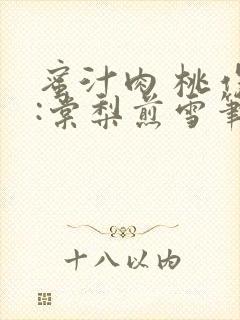 蜜汁肉桃作
:棠梨煎雪筆
十八以内